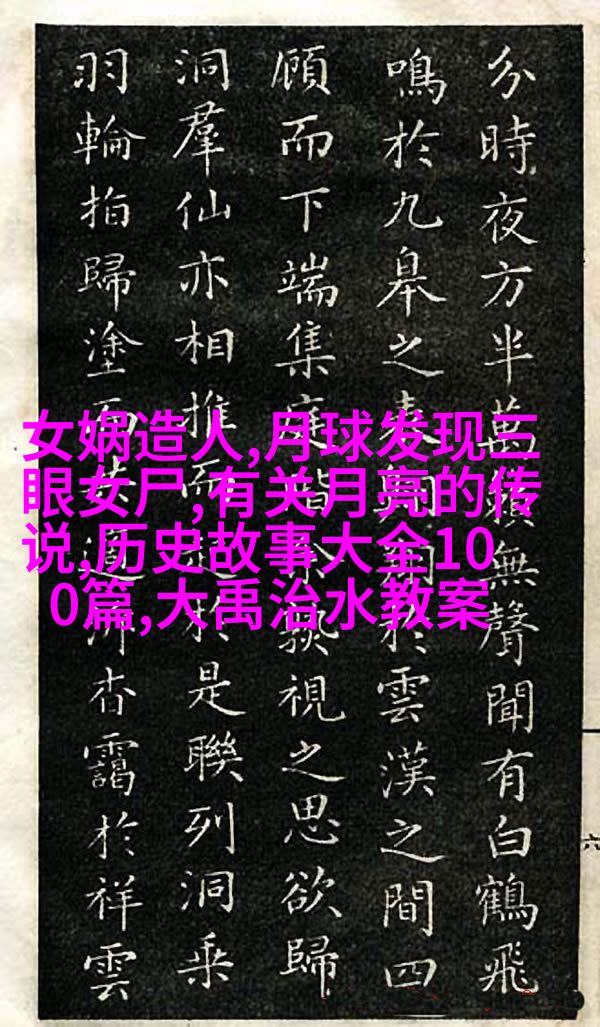 分時夜方半萬籟無聲聞有白鶴飛
鳴於九皋之表翔於雲漢之間四
顧而下端集庭階視之思欲歸
洞羣仙亦相推而於是聯列洞乘
羽輪拍歸塗而杳靄於祥雲
女娲造人,月球发现三
眼女尸,有关月亮的传
说,历史故事大全10
0篇,大禹治水教案
六